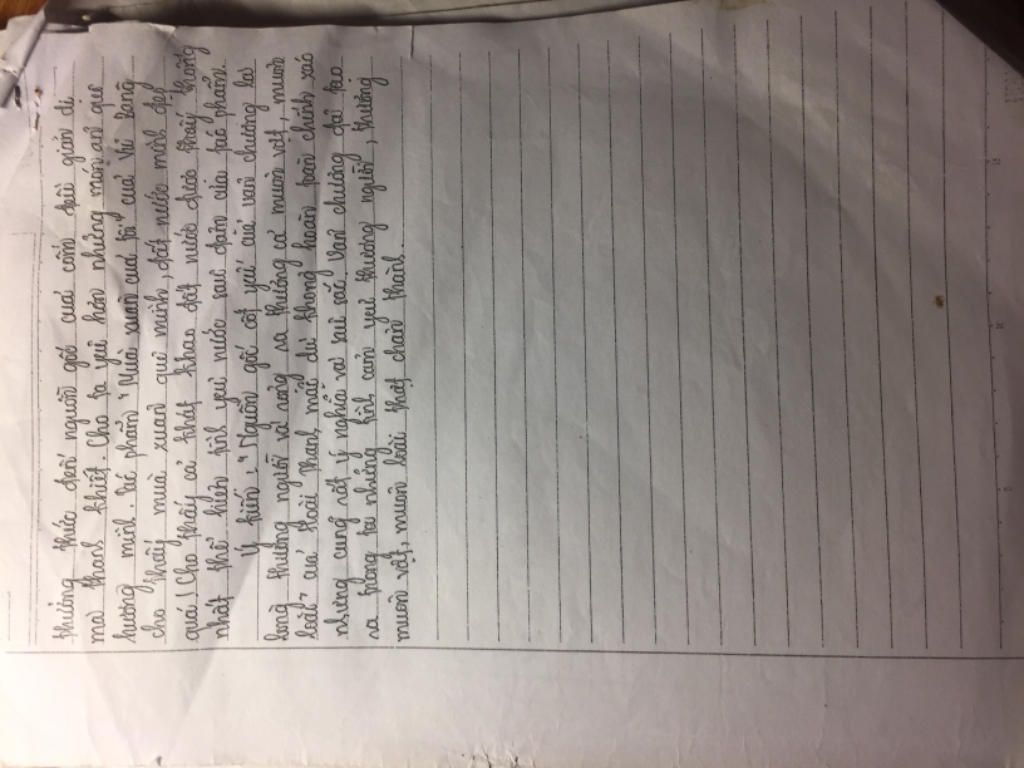 thưởng thức đơn nguồn gốc của cốm tuy giản dị
mà thanh khiết. Cho ta yêu hơn những món ăn quê
hương mình. Tác phẩm "Mùa xuân của tôi" của Vũ Bằng
cho thấy mùa xuân quê mình, đất nước mình đẹp
quá! Cho thấy cả khát khao đất nước được thấy thống
nhất thể hiện tình yêu nước sâu đậm của tác phẩm.
Ý kiến: "Nguồn gốc cốt yếu của văn chương là
lòng thương người và rộng ra thương cả muôn vật, muôn
loài" của Hoài Thanh, mặc dù không hoàn toàn chính xác
nhưng cũng rất ý nghĩa và sâu sắc. Văn chương đã tạo
ra trong ta những tình cảm yêu thương người, thương
muôn vật, muôn loài thật chân thành.